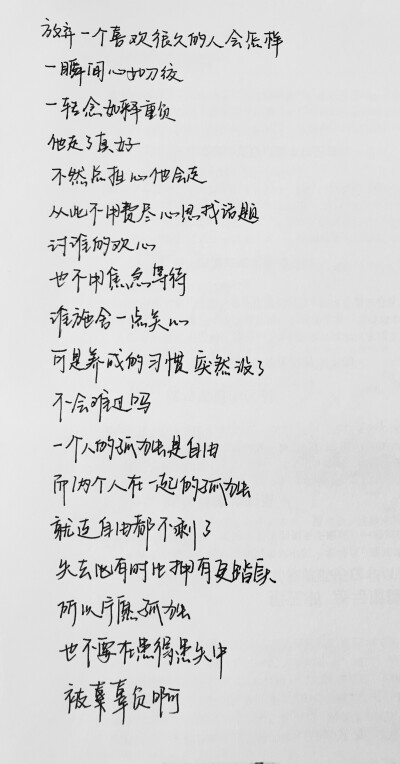 放弃一个喜欢很久的人会怎样
一瞬间心如刀绞
一转念如释重负
他走了真好
不然总担心他会走
从此不用费尽心思找话题
讨谁的欢心
也不用焦急等待
谁施舍一点关心
可是养成的习惯突然没了
不会难过吗
一个人的孤独是自由
而两个人在一起的孤独
就连自由都不剩了
失去也有时比拥有更踏实
所以宁愿孤独
也不要在患得患失中
被辜辜负啊